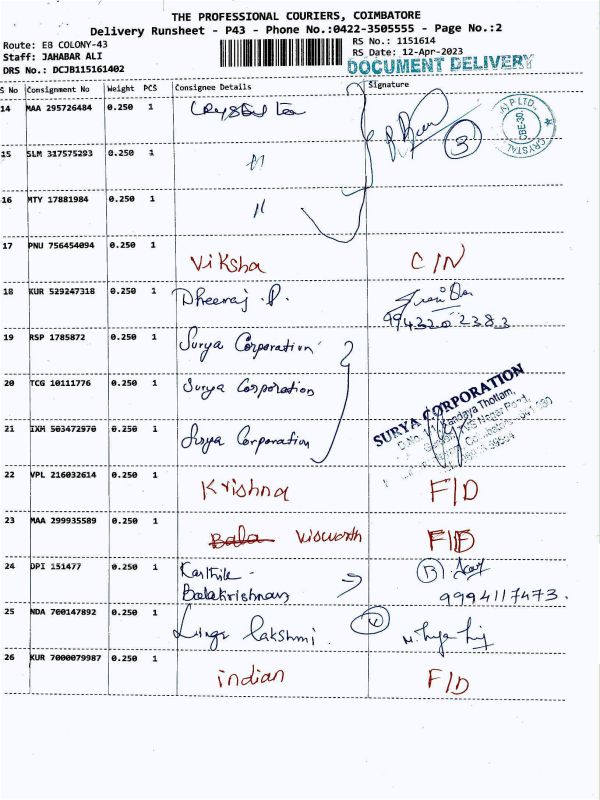 THE PROFESSIONAL COURIERS, COIMBATORE
Delivery Runsheet - P43 - Phone No.:0422-3505555 - Page No.:2
Route: EB COLONY-43
RS No.: 1151614
Staff: JAHABAR ALI
RS Date: 12-Apr-2023
DRS No.: DCJB115161402
DOCUMENT DELIVERY
S No Consignment No Weight PCS Consignee Details Signature
14 MAA 295726484 0.250 1 Crystal
3
15 SLM 317575293 0.250 1 "
16 MTY 17881984 0.250 1 "
17 PNU 756454094 0.250 1 Viksha C/N
18 KUR 529247318 0.250 1 Dheeraj . P.
9943202383
19 RSP 1785872 0.250 1 Surya Corporation
20 TCG 10111776 0.250 1 Surya Corporation
SURYA CORPORATION
21 IXM 503472970 0.250 1 Surya Corporation
22 VPL 216032614 0.250 1 Krishna F/D
23 MAA 299935589 0.250 1 Bala Viswonth F/D
24 DPI 151477 0.250 1 Karthik
Balakrishnan 9994117473.
25 NDA 700147892 0.250 1 Linga lakshmi.
26 KUR 7000079987 0.250 1 indian F/D